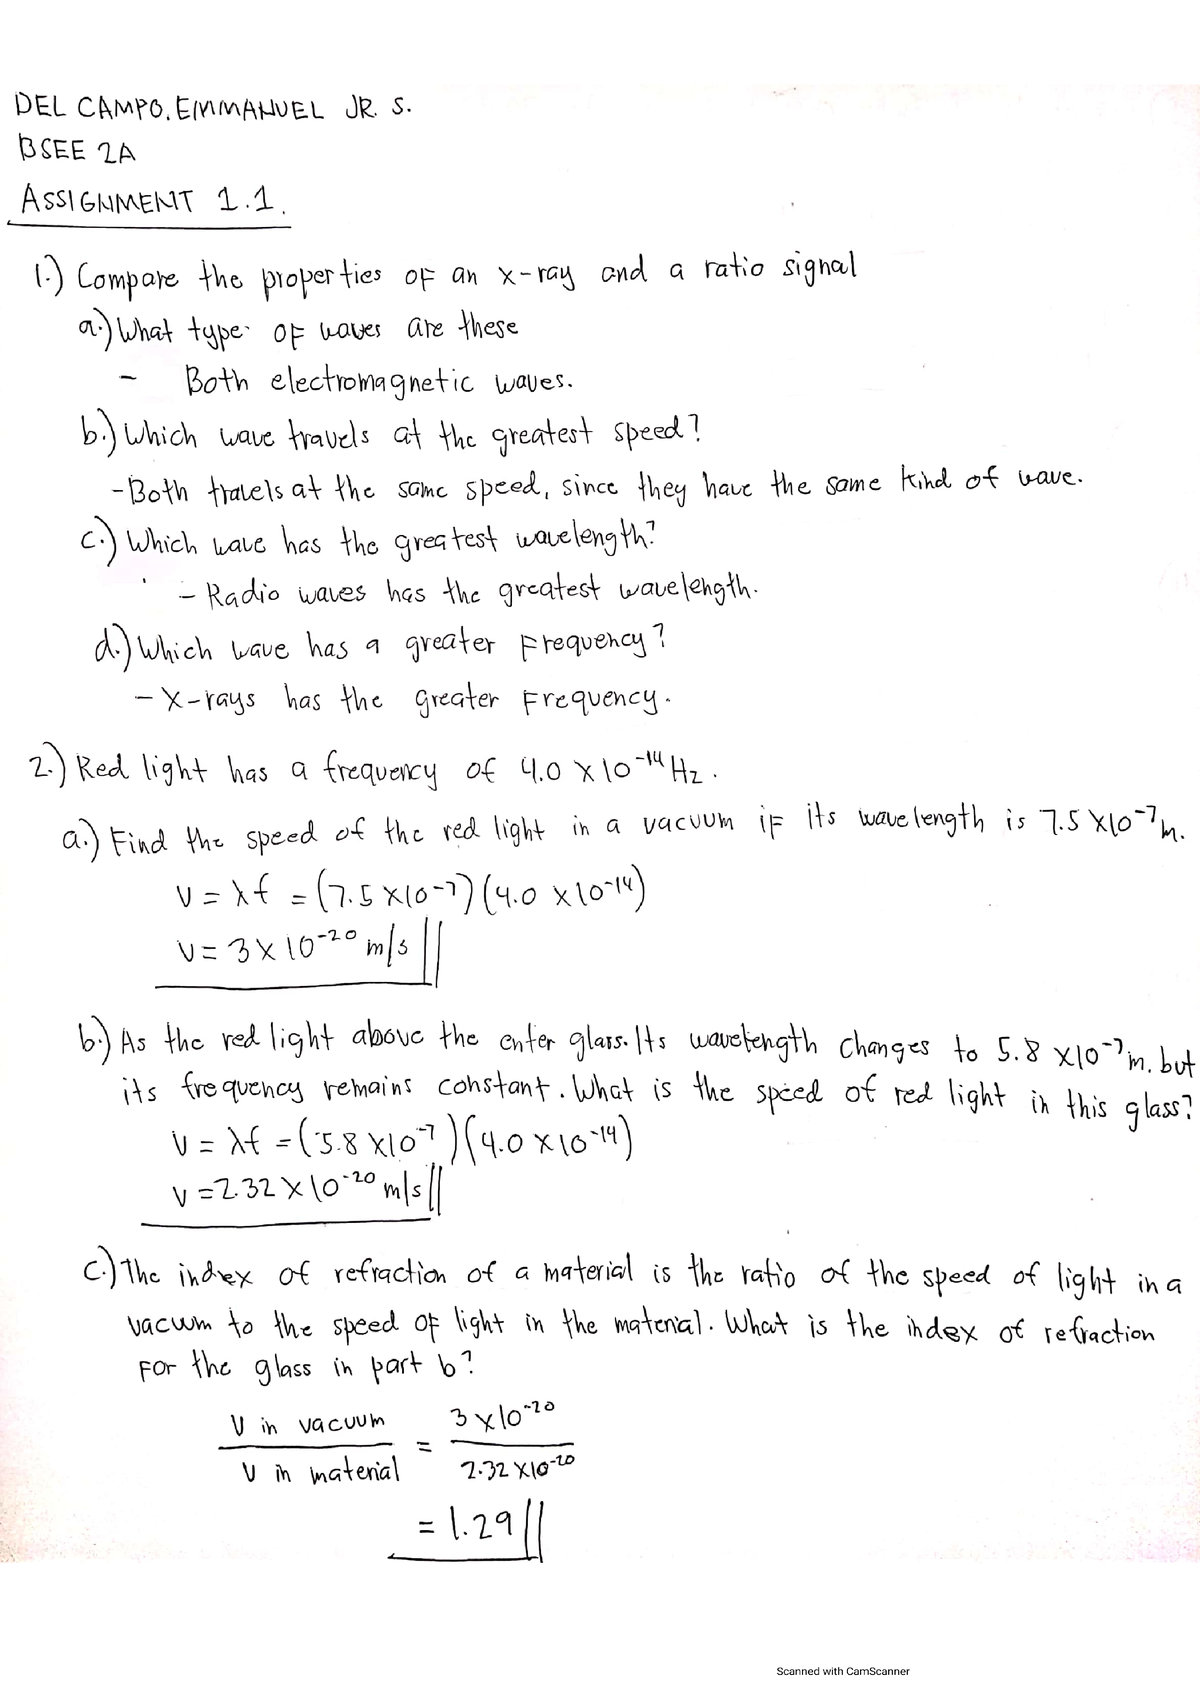 DEL CAMPO, EMMANUEL JR. S.
BSEE 2A
ASSIGNMENT 1.1.
1.) Compare the properties of an x-ray and a ratio signal
a.) What type of waves are these
- Both electromagnetic waves.
b.) Which wave travels at the greatest speed?
- Both travels at the same speed, since they have the same kind of wave.
c.) Which wave has the greatest wavelength?
- Radio waves has the greatest wavelength.
d.) Which wave has a greater Frequency?
- X-rays has the greater Frequency.
2.) Red light has a frequency of 4.0 x 10^-14 Hz.
a.) Find the speed of the red light in a vacuum if its wavelength is 7.5 x10^-7 m.
V = λf = (7.5 x10^-7) (4.0 x10^-14)
V = 3 x 10^-20 m/s
b.) As the red light above the enter glass. Its wavelength changes to 5.8 x10^-7 m. but
its frequency remains constant. What is the speed of red light in this glass?
V = λf = (5.8 x10^-7) (4.0 x10^-14)
V = 2.32 x 10^-20 m/s
c.) The index of refraction of a material is the ratio of the speed of light in a
vacuum to the speed of light in the material. What is the index of refraction
For the glass in part b?
V in vacuum / V in material = 3 x10^-20 / 2.32 x10^-20
= 1.29
Scanned with CamScanner